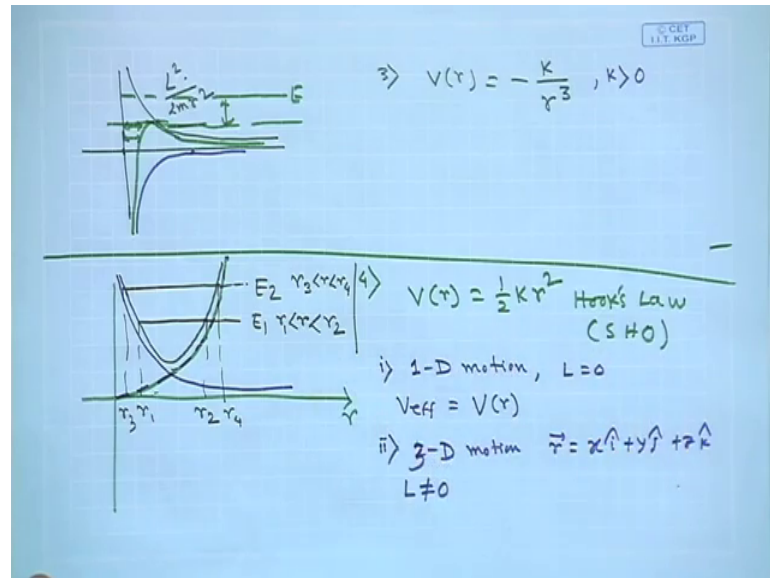 © CET
I.I.T. KGP
L²
2mr²
E
3> V(r) = - K/r³ , K>0
E2 r3<r<r4
E1 r1<r<r2
r3 r1 r2 r4 r
4> V(r) = 1/2 Kr² Hook's Law
(SHO)
i> 1-D motion, L=0
Veff = V(r)
ii> 3-D motion r⃗ = xî+yĵ+zk̂
L≠0